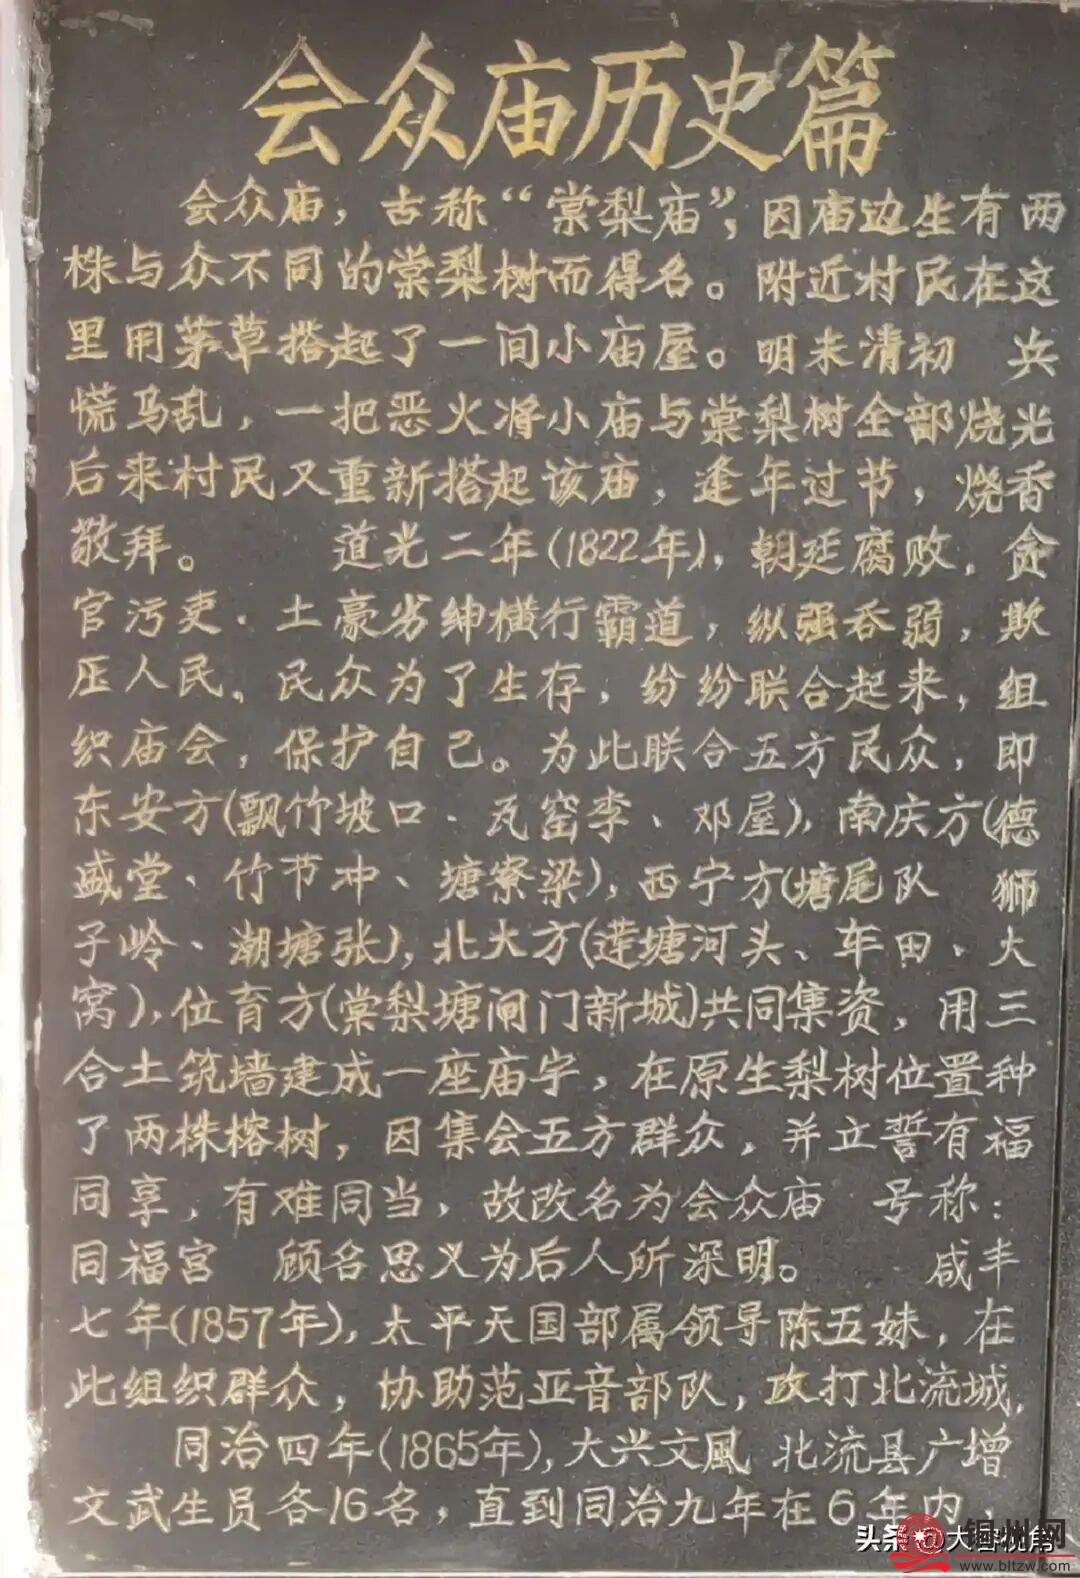 会众庙历史篇
会众庙，古称“棠梨庙”，因庙边生有两
株与众不同的棠梨树而得名。附近村民在这
里用茅草搭起了一间小庙屋。明末清初 兵
慌马乱，一把恶火将小庙与棠梨树全部烧光
后来村民又重新搭起该庙，逢年过节，烧香
敬拜。 道光二年(1822年)，朝廷腐败，贪
官污吏．土豪劣绅横行霸道，纵强吞弱，欺
压人民。民众为了生存，纷纷联合起来，组
织庙会，保护自己。为此联合五方民众，即
东安方(飘竹坡口、瓦窑李、邓屋)，南庆方(德
盛堂、竹节冲、塘寮梁)，西宁方(塘尾队 狮
子岭、潮塘张)，北大方(莲塘河头、车田、大
窝)，位育方(棠梨塘闸门新城)共同集资，用三
合土筑墙建成一座庙宇，在原生梨树位置种
了两株榕树，因集会五方群众，并立誓有福
同享，有难同当，故改名为会众庙 号称：
同福宫 顾名思义为后人所深明。 咸丰
七年(1857年)，太平天国部属领导陈五妹，在
此组织群众，协助范亚音部队，攻打北流城，
同治四年(1865年)，大兴文風 北流县广增
文武生员各16名，直到同治九年在6年内，
头条@大容视角
铜州网
www.bltzw.com